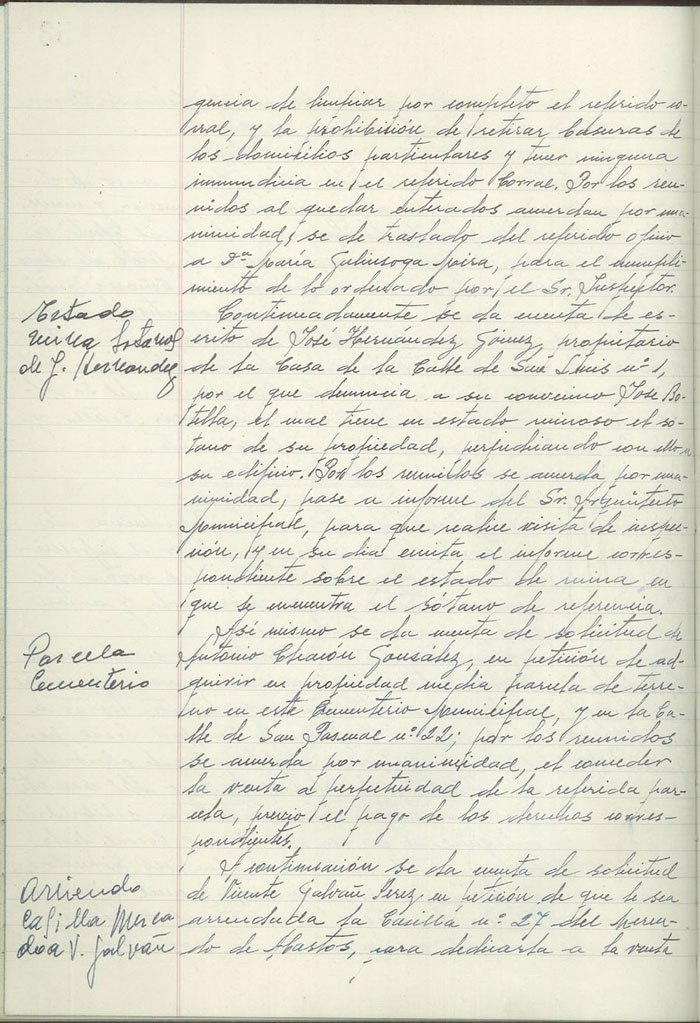 gencia de limpiar por completo el referido co-
rral, y la prohibición de retirar basuras de
los domicilios particulares y tener ninguna
inmundicia en el referido Corral. Por los reu-
nidos al quedar enterados acuerdan por una-
nimidad, se de traslado del referido oficio
a Dª María Galiusoga Moira, para el cumpli-
miento de lo ordenado por el Sr. Inspector.
Estado
ruina Sotanos
de J. Hernandez
Continuadamente se da cuenta de es-
crito de José Hernández Gómez, propietario
de la Casa de la Calle de San Luis nº 1,
por el que denuncia a su convecino Jose Bo-
tella, el cual tiene en estado ruinoso el so-
tano de su propiedad, perjudicando con ello a
su edificio. Por los reunidos se acuerda por una-
nimidad, pase a informe del Sr. Arquitecto
Municipal, para que realice visita de inspec-
ción, y en su dia emita el informe corres-
pondiente sobre el estado de ruina en
que se encuentra el sótano de referencia.
Parcela
Cementerio
Asé mismo se da cuenta de solicitud de
Antonio Chacón González, en petición de ad-
quirir en propiedad media parcela de terre-
no en este Cementerio Municipal, y en la Ca-
lle de San Pascual nº 22; por los reunidos
se acuerda por unanimidad, el conceder
la venta a perpetuidad de la referida par-
cela, previo el pago de los derechos corres-
pondientes.
Arriendo
Casilla Merca
do a V. Galvañ
A continuación se da cuenta de solicitud
de Vicente Galvañ Perez en petición de que le sea
arrendada la Casilla nº 27 del Merca-
do de Abastos, para dedicarla a la venta